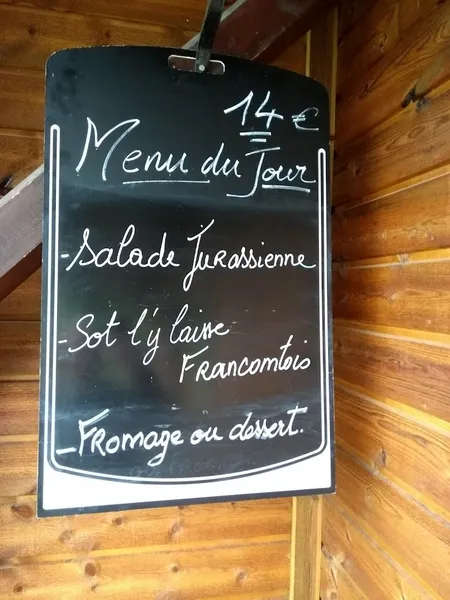 14 €
Menu du Jour
- Salade Jurassienne
- Sot l'y laisse
Francomtois
- Fromage ou dessert.